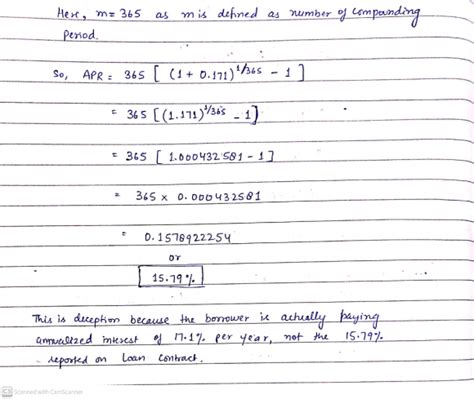 Here, m= 365 as m is defined as number of compounding
Period.
So, APR = 365 [ (1 + 0.171)^1/365 - 1 ]
= 365 [(1.171)^1/365 - 1]
= 365 [ 1.000432581 - 1 ]
= 365 x 0.000432581
= 0.1578922254
or
15.79 %
This is deception because the borrower is actually paying
annualized interest of 17.1% per year, not the 15.79%
reported on Loan Contract.
CS Scanned with CamScanner